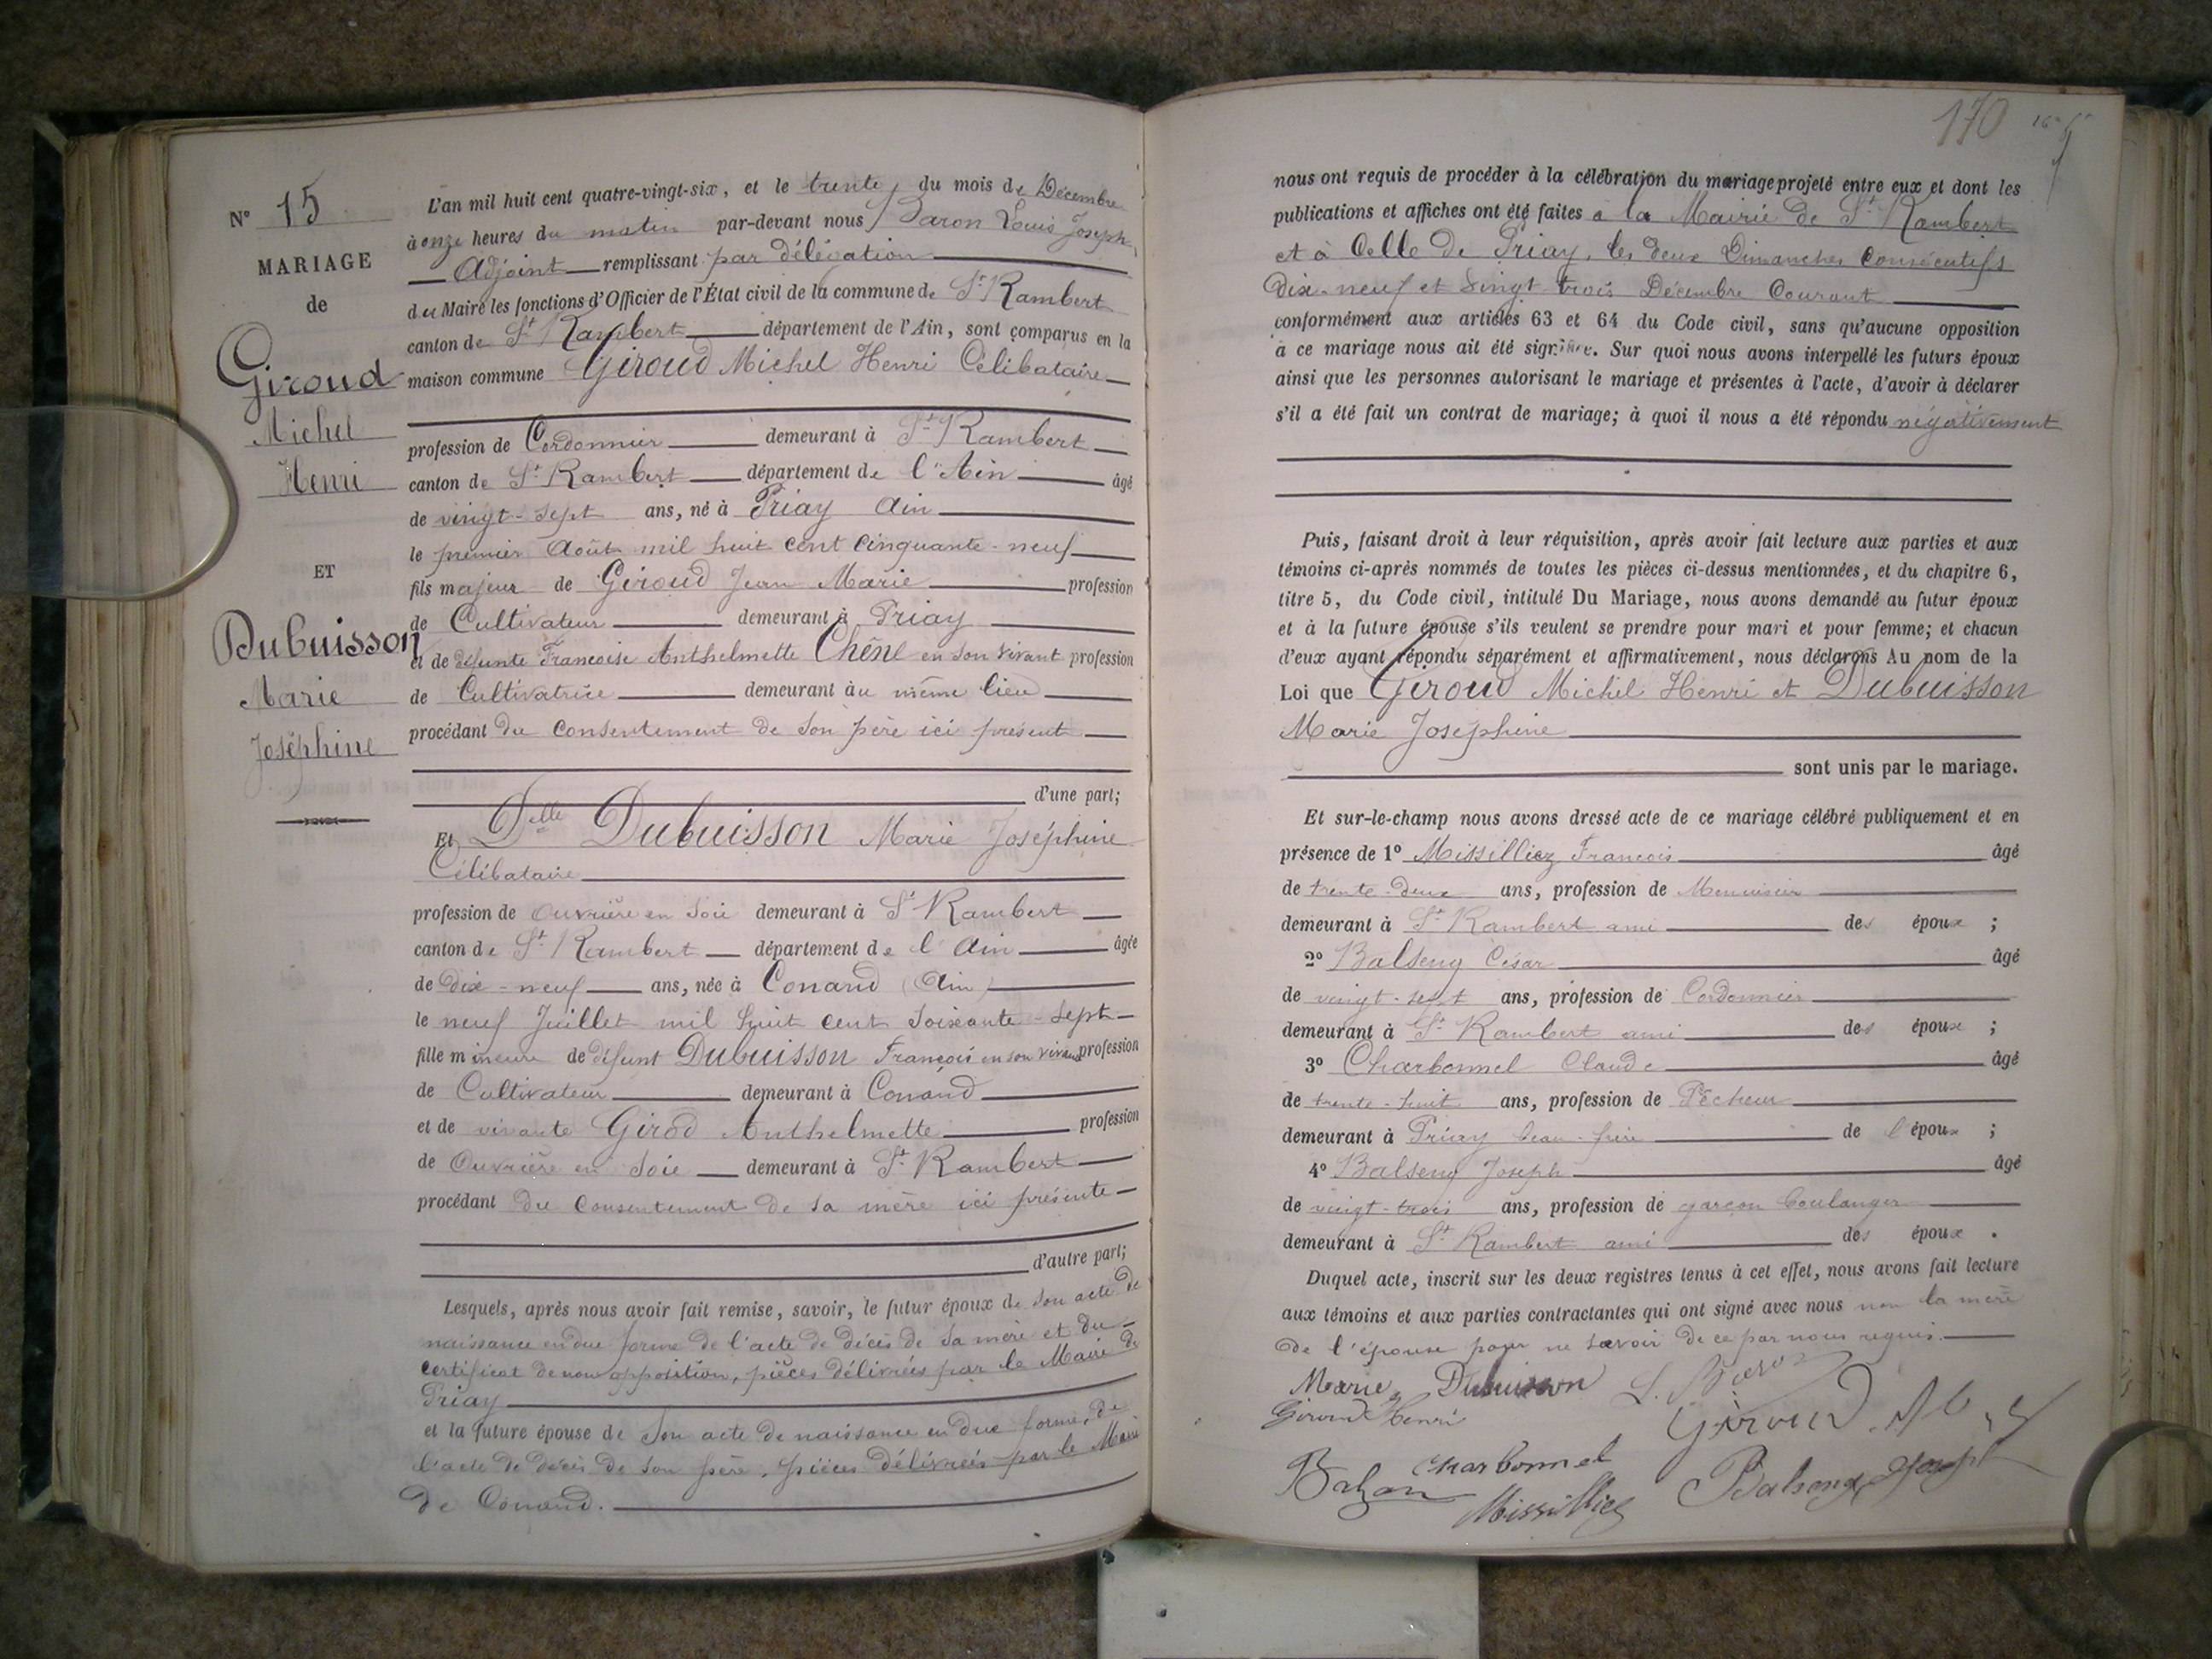 N° 15
MARIAGE
de
Giroud
Michel
Henri
ET
Dubuisson
Marie
Joséphine
L'an mil huit cent quatre-vingt-six, et le trente, du mois de Décembre
à onze heures du matin par-devant nous Baron Louis Joseph
Adjoint remplissant par délégation
du Maire les fonctions d'Officier de l'État civil de la commune de St Rambert
canton de St Rambert département de l'Ain, sont comparus en la
maison commune Giroud Michel Henri Célibataire
profession de Cordonnier demeurant à St Rambert
canton de St Rambert département de l'Ain âgé
de vingt-sept ans, né à Priay Ain
le premier Août mil huit cent cinquante-neuf
fils majeur de Giroud Jean Marie profession
de Cultivateur demeurant à Priay
et de défunte Francoise Anthelmette Chêne en son vivant profession
de Cultivatrice demeurant au même lieu
procédant du consentement de son père ici présent
d'une part;
Et Delle Dubuisson Marie Joséphine
Célibataire
profession de ouvrière en soie demeurant à St Rambert
canton de St Rambert département de l'Ain âgée
de dix-neuf ans, née à Conand (Ain)
le neuf Juillet mil huit cent soixante-sept
fille mineure de défunt Dubuisson François en son vivant profession
de Cultivateur demeurant à Conand
et de vivante Girod Anthelmette profession
de Ouvrière en soie demeurant à St Rambert
procédant du consentement de sa mère ici présente
d'autre part;
Lesquels, après nous avoir fait remise, savoir, le futur époux de son acte de
naissance en due forme de l'acte de décès de sa mère et du
certificat de non opposition, pièces délivrées par le Maire de
Priay
et la future épouse de son acte de naissance en due forme, de
l'acte de décès de son père, pièces délivrées par le Maire
de Conand.
170
nous ont requis de procéder à la célébration du mariage projeté entre eux et dont les
publications et affiches ont été faites à la Mairie de St Rambert
et à Celle de Priay, les deux Dimanches consécutifs
Dix-neuf et vingt trois Décembre Courant
conformément aux articles 63 et 64 du Code civil, sans qu'aucune opposition
à ce mariage nous ait été signifiée. Sur quoi nous avons interpellé les futurs époux
ainsi que les personnes autorisant le mariage et présentes à l'acte, d'avoir à déclarer
s'il a été fait un contrat de mariage; à quoi il nous a été répondu négativement
Puis, faisant droit à leur réquisition, après avoir fait lecture aux parties et aux
témoins ci-après nommés de toutes les pièces ci-dessus mentionnées, et du chapitre 6,
titre 5, du Code civil, intitulé Du Mariage, nous avons demandé au futur époux
et à la future épouse s'ils veulent se prendre pour mari et pour femme; et chacun
d'eux ayant répondu séparément et affirmativement, nous déclarons Au nom de la
Loi que Giroud Michel Henri et Dubuisson
Marie Joséphine
sont unis par le mariage.
Et sur-le-champ nous avons dressé acte de ce mariage célébré publiquement et en
présence de 1° Missilliez Francois âgé
de trente-deux ans, profession de Menuisier
demeurant à St Rambert ami des époux ;
2° Balseng César âgé
de vingt-sept ans, profession de Cordonnier
demeurant à St Rambert ami des époux ;
3° Charbonnel Claude âgé
de trente-huit ans, profession de Pêcheur
demeurant à Priay beau-frère de l'époux ;
4° Balseng Joseph âgé
de vingt-trois ans, profession de garçon boulanger
demeurant à St Rambert ami des époux .
Duquel acte, inscrit sur les deux registres tenus à cet effet, nous avons fait lecture
aux témoins et aux parties contractantes qui ont signé avec nous non la mère
de l'épouse pour ne savoir de ce par nous requis.
Marie Dubuisson L. Baron
Giroud henri Giroud
charbonnel
Missilliez Balseng Joseph